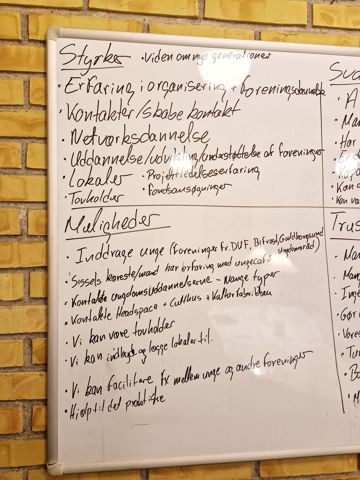 Styrker · Viden om nye generationer
• Erfaring i organisering + foreningsdannelse
• Kontakter/skabe kontakt
• Netværksdannelse
• Uddannelse/udvikling/understøttelse af foreninger
• Lokaler • Projektledelseserfaring
• Tovholder • Fondsansøgninger
Muligheder
• Inddrage unge (foreninger fx. DUF, Bifrost/Guldborgsund
ungdomsråd)
• Sissels kæreste/mand har erfaring med ungecafé
• Kontakte ungdomsuddannelserne - Mange typer
• Kontakte Headspace + Culthus + Kulturfabrikken
• Vi kan være tovholder
• Vi kan indbyde og lægge lokaler til.
• Vi kan facilitere fx mellem unge og andre foreninger
• Hjælp til det praktiske
Sva
• A
• Man
• Har
• Kan
Kan va
Trus
• Man
• Mang
• Inge
• Gør
• Vores